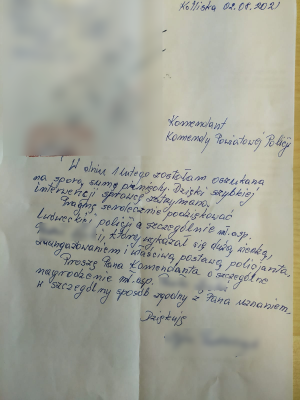 02.08.2021
Komendant
Komendy Powiatowej Policji
W dniu 1 lutego zostałam oszukana
na sporą sumę pieniędzy. Dzięki szybkiej
interwencji sprawcę zatrzymano.
Pragnę serdecznie podziękować
policji a szczególnie mł.asp.
który wykazał się dużą wiedzą,
zaangażowaniem i właściwą postawą policjanta.
Proszę Pana Komendanta o szczególne
nagrodzenie mł.asp.
w szczególny sposób zgodny z Pana uznaniem.
Dziękuję